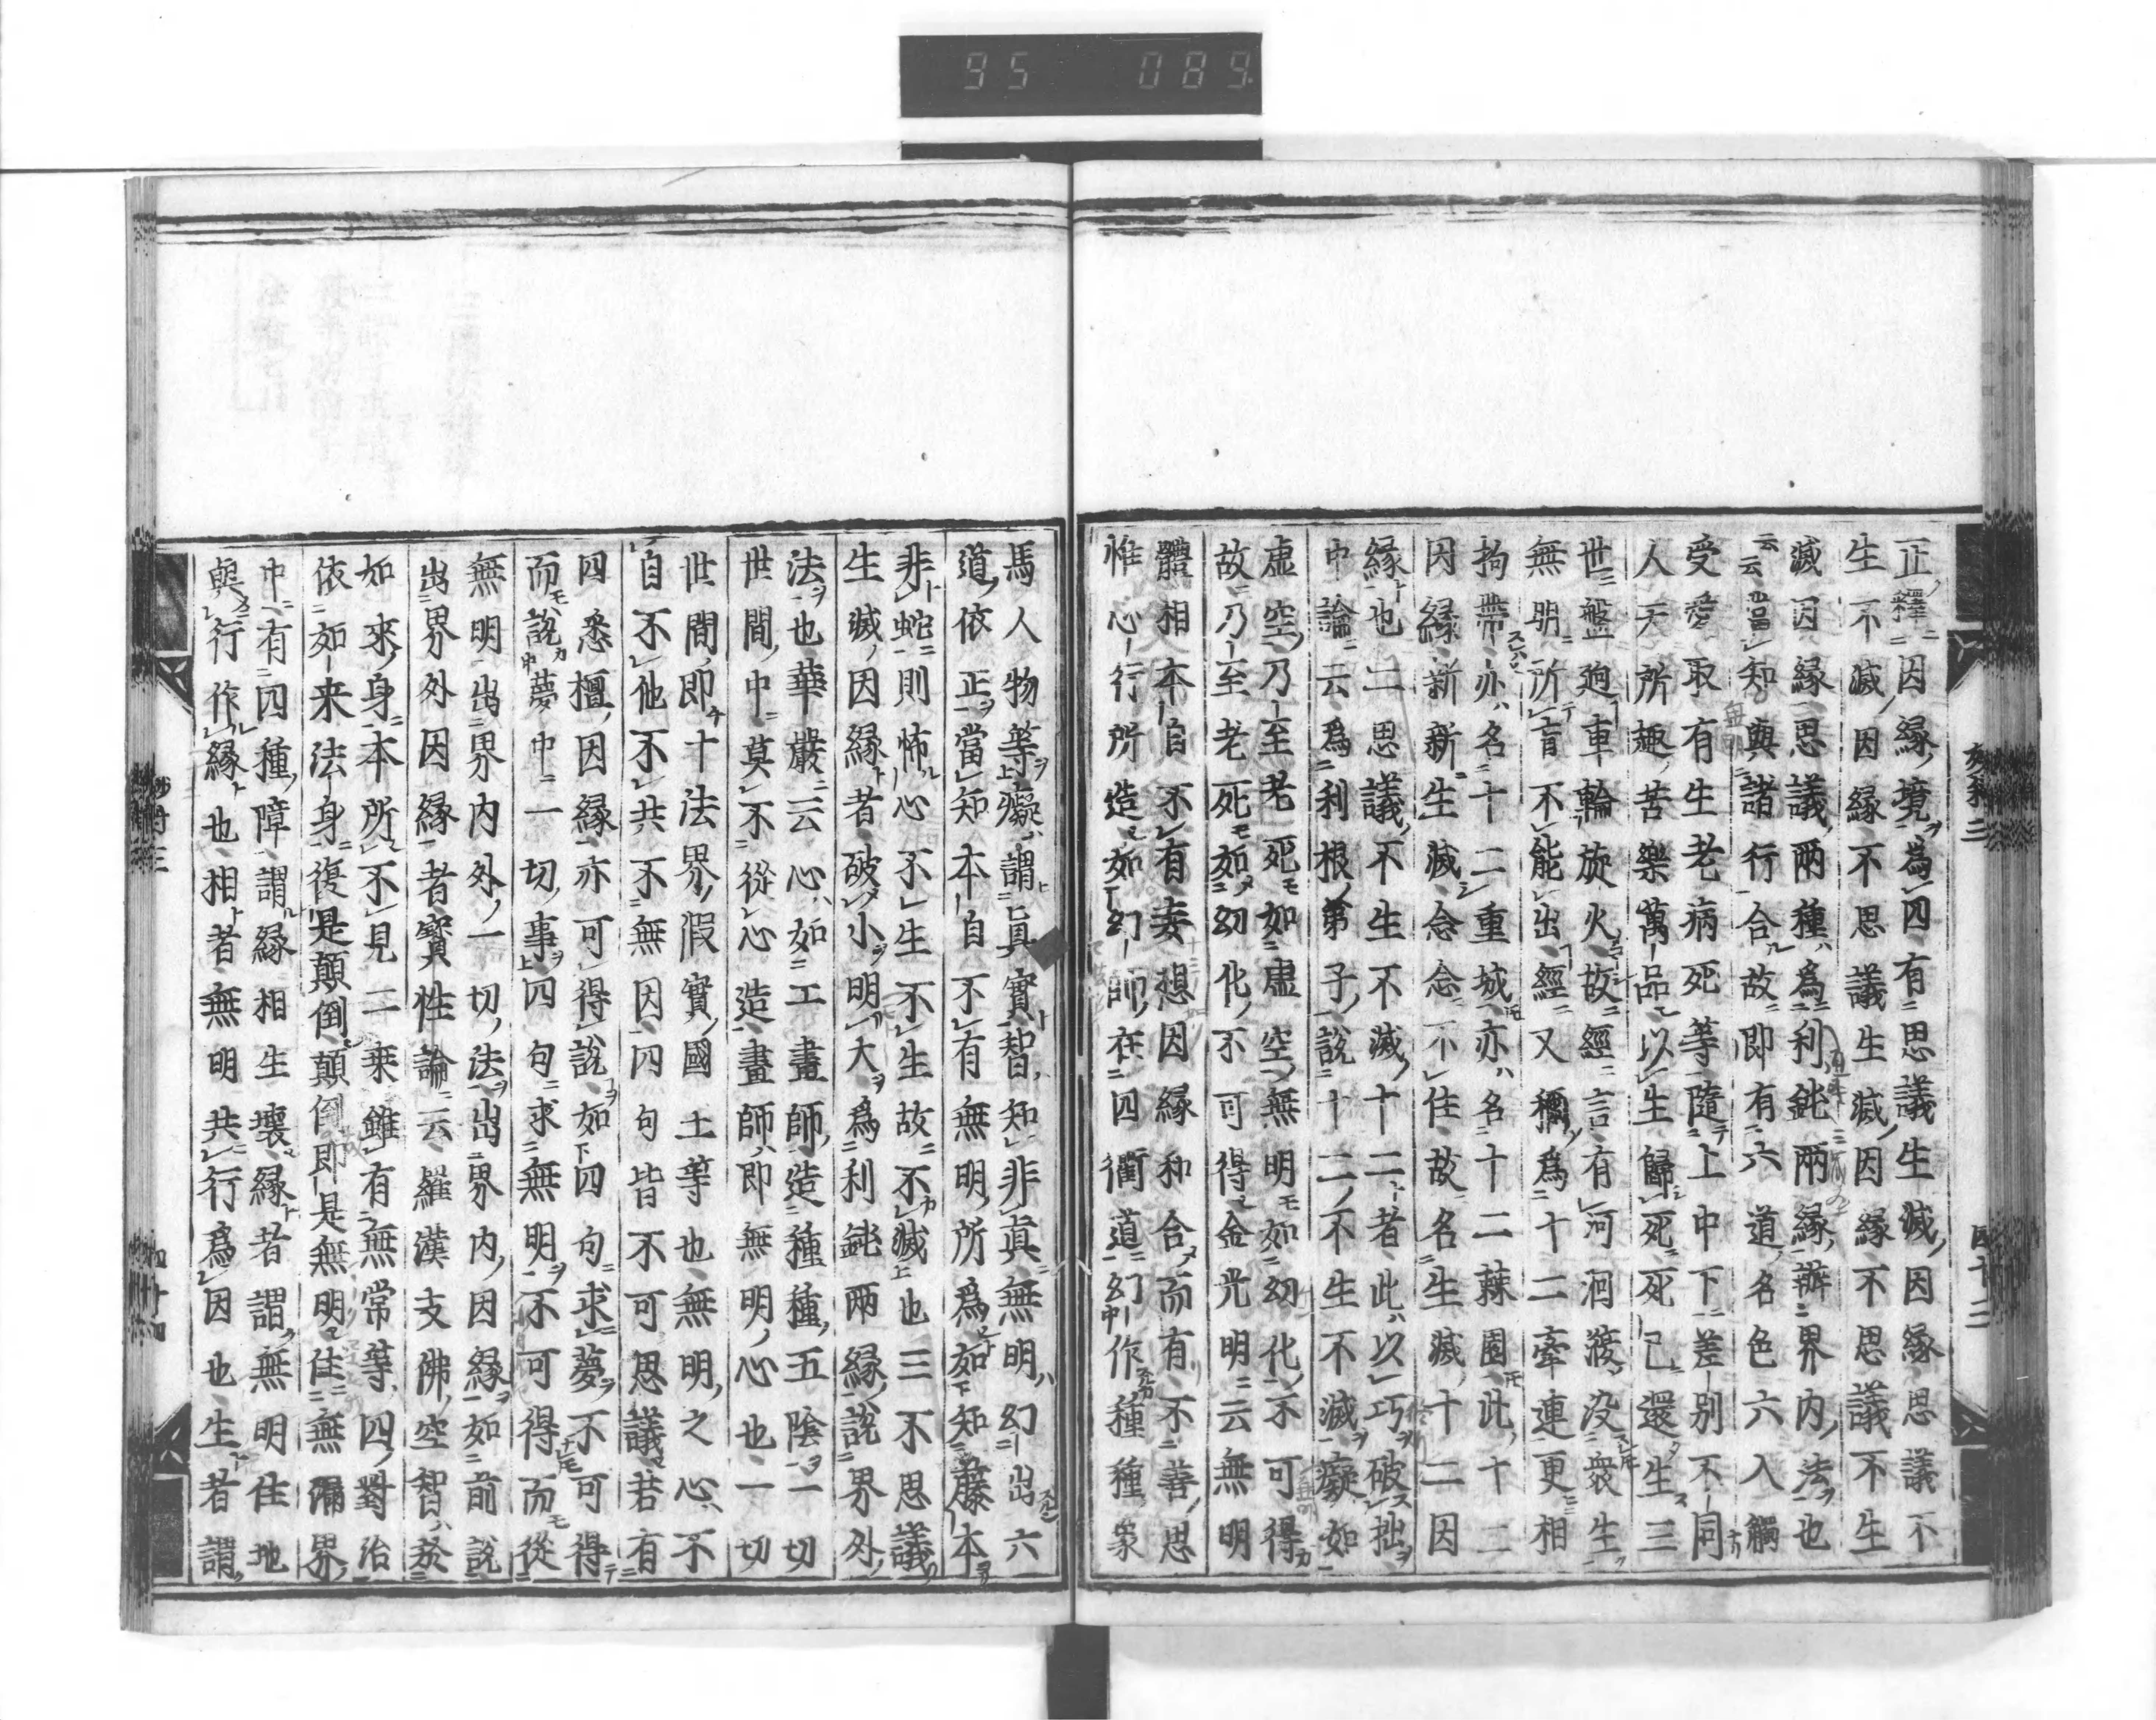 95 089
正釋因緣境爲四有思議生滅因緣思議不
生不滅因緣不思議生滅因緣不思議不生
滅因緣思議兩種爲利鈍兩緣辦界內法也
云云當知無明與諸行合故即有六道名色六入觸
受愛取有生老病死等隨上中下差別不同
人天所趣苦樂萬品以生歸死死已還生三
世盤迴車輪旋火故經言有河洄澓没衆生
無明所盲不能出經又稱爲十二牽連更相
拘帶亦名十二重城亦名十二棘園此十二
因緣新新生滅念念不住故名生滅十二因
緣也二思議不生不滅十二者此以巧破拙
中論云爲利根弟子說十二不生不滅癡如
虛空乃至老死如虛空無明如幻化不可得
故乃至老死如幻化不可得金光明云無明
體相本自不有妄想因緣和合而有不善思
惟心行所造如幻師在四衢道幻作種種象
馬人物等癡謂眞實智知非眞無明幻出六
道依正當知本自不有無明所爲如知藤本
非蛇則怖心不生不生故不滅也三不思議
生滅因緣者破小明大爲利鈍兩緣說界外
法也華嚴云心如工畫師造種種五陰一切
世間中莫不從心造畫師即無明心也一切
世間即十法界假實國土等也無明之心不
自不他不共不無因四句皆不可思議若有
四悉檀因緣亦可得說如四句求夢不可得
而說夢中一切事四句求無明不可得而從
無明出界內外一切法出界內因緣如前說
出界外因緣者寳性論云羅漢支佛空智於
如來身本所不見二乗雖有無常等四對治
依如来法身復是顛倒顛倒即是無明住無漏界
中有四種障謂緣相生壞緣者謂無明住地
與行作緣也相者無明共行爲因也生者謂